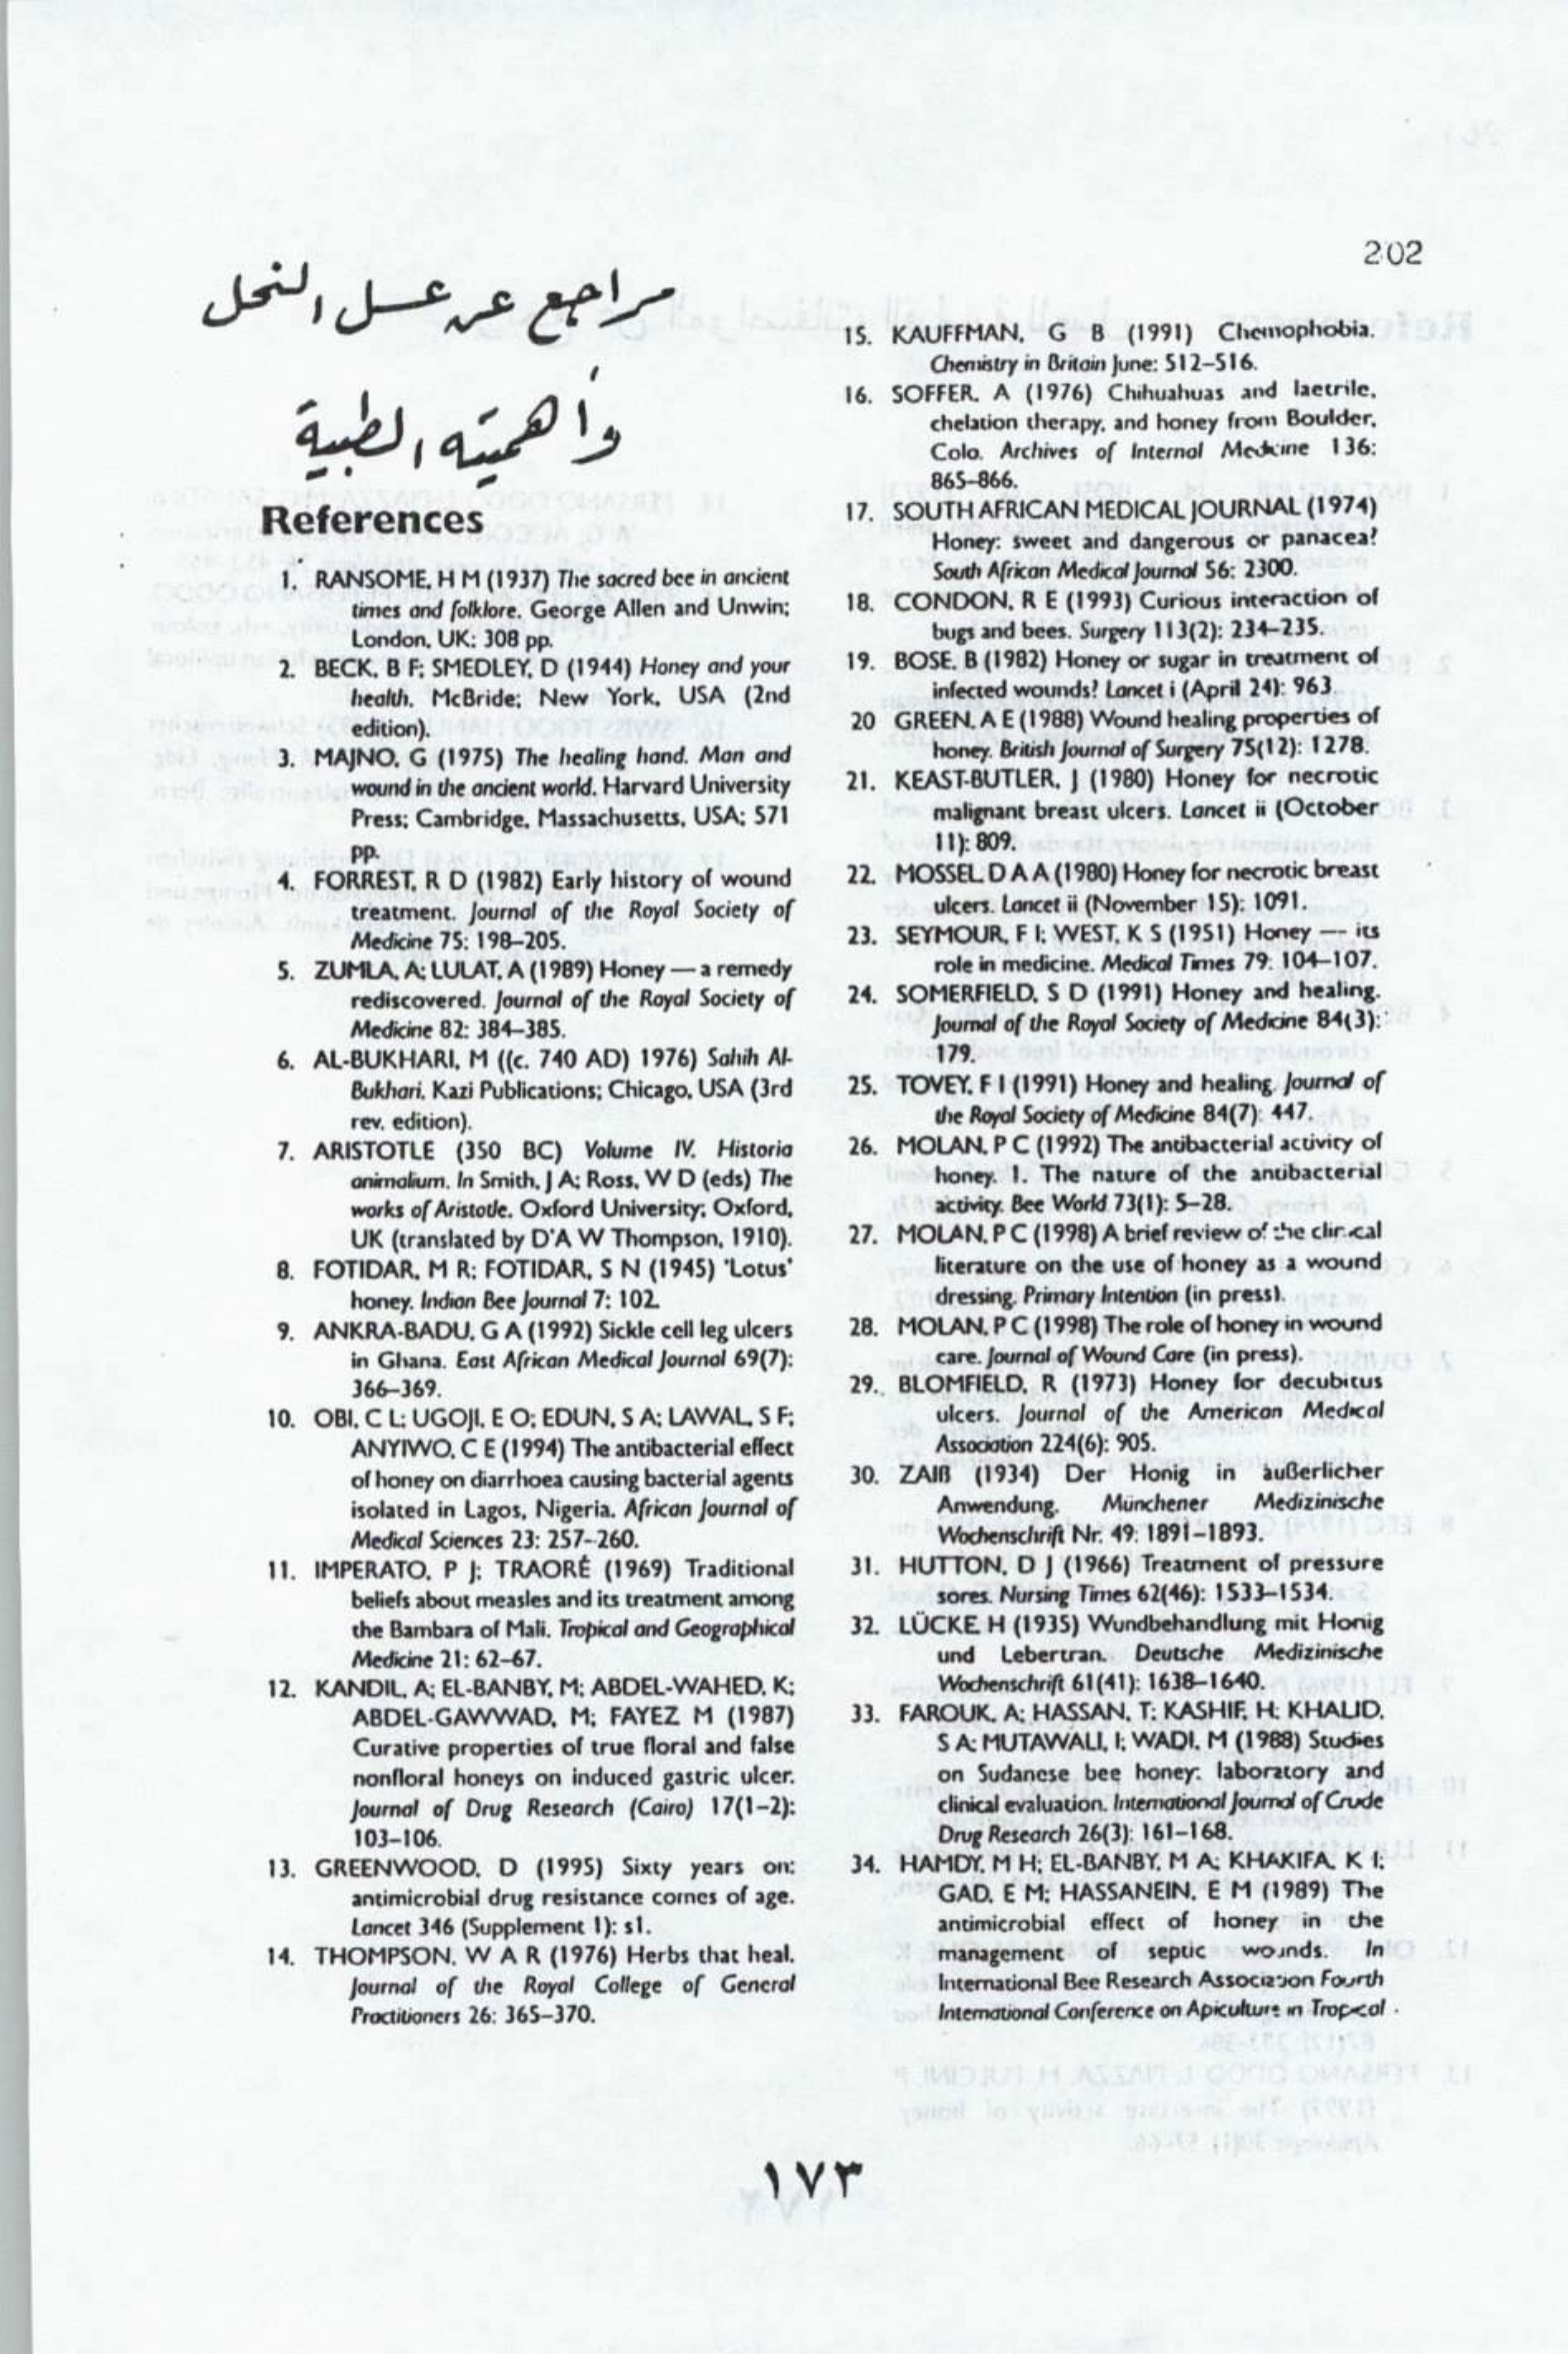 202
مراجع عن عسل النحل
وأهميته الطبية
References
1. RANSOME, H M (1937) The sacred bee in ancient
times and folklore. George Allen and Unwin;
London, UK; 308 pp.
2. BECK, B F; SMEDLEY, D (1944) Honey and your
health. McBride; New York, USA (2nd
edition).
3. MAJNO, G (1975) The healing hand. Man and
wound in the ancient world. Harvard University
Press; Cambridge, Massachusetts, USA; 571
pp.
4. FORREST, R D (1982) Early history of wound
treatment. Journal of the Royal Society of
Medicine 75: 198–205.
5. ZUMLA, A; LULAT, A (1989) Honey — a remedy
rediscovered. Journal of the Royal Society of
Medicine 82: 384–385.
6. AL-BUKHARI, M ((c. 740 AD) 1976) Sahih Al-
Bukhari. Kazi Publications; Chicago, USA (3rd
rev. edition).
7. ARISTOTLE (350 BC) Volume IV. Historia
animalium. In Smith, J A; Ross, W D (eds) The
works of Aristotle. Oxford University; Oxford,
UK (translated by D'A W Thompson, 1910).
8. FOTIDAR, M R; FOTIDAR, S N (1945) 'Lotus'
honey. Indian Bee Journal 7: 102.
9. ANKRA-BADU, G A (1992) Sickle cell leg ulcers
in Ghana. East African Medical Journal 69(7):
366–369.
10. OBI, C L; UGOJI, E O; EDUN, S A; LAWAL, S F;
ANYIWO, C E (1994) The antibacterial effect
of honey on diarrhoea causing bacterial agents
isolated in Lagos, Nigeria. African Journal of
Medical Sciences 23: 257–260.
11. IMPERATO, P J; TRAORÉ (1969) Traditional
beliefs about measles and its treatment among
the Bambara of Mali. Tropical and Geographical
Medicine 21: 62–67.
12. KANDIL, A; EL-BANBY, M; ABDEL-WAHED, K;
ABDEL-GAWWAD, M; FAYEZ M (1987)
Curative properties of true floral and false
nonfloral honeys on induced gastric ulcer.
Journal of Drug Research (Cairo) 17(1–2):
103–106.
13. GREENWOOD, D (1995) Sixty years on:
antimicrobial drug resistance comes of age.
Lancet 346 (Supplement 1): s1.
14. THOMPSON, W A R (1976) Herbs that heal.
Journal of the Royal College of General
Practitioners 26: 365–370.
15. KAUFFMAN, G B (1991) Chemophobia.
Chemistry in Britain June: 512–516.
16. SOFFER, A (1976) Chihuahuas and laetrile,
chelation therapy, and honey from Boulder,
Colo. Archives of Internal Medicine 136:
865–866.
17. SOUTH AFRICAN MEDICAL JOURNAL (1974)
Honey: sweet and dangerous or panacea?
South African Medical Journal 56: 2300.
18. CONDON, R E (1993) Curious interaction of
bugs and bees. Surgery 113(2): 234–235.
19. BOSE, B (1982) Honey or sugar in treatment of
infected wounds? Lancet i (April 24): 963.
20 GREEN, A E (1988) Wound healing properties of
honey. British Journal of Surgery 75(12): 1278.
21. KEAST-BUTLER, J (1980) Honey for necrotic
malignant breast ulcers. Lancet ii (October
11): 809.
22. MOSSEL D A A (1980) Honey for necrotic breast
ulcers. Lancet ii (November 15): 1091.
23. SEYMOUR, F I; WEST, K S (1951) Honey — its
role in medicine. Medical Times 79: 104–107.
24. SOMERFIELD, S D (1991) Honey and healing.
Journal of the Royal Society of Medicine 84(3):
179.
25. TOVEY, F I (1991) Honey and healing. Journal of
the Royal Society of Medicine 84(7): 447.
26. MOLAN, P C (1992) The antibacterial activity of
honey. 1. The nature of the antibacterial
activity. Bee World 73(1): 5–28.
27. MOLAN, P C (1998) A brief review of the clinical
literature on the use of honey as a wound
dressing. Primary Intention (in press).
28. MOLAN, P C (1998) The role of honey in wound
care. Journal of Wound Care (in press).
29. BLOMFIELD, R (1973) Honey for decubitus
ulcers. Journal of the American Medical
Association 224(6): 905.
30. ZAIß (1934) Der Honig in äußerlicher
Anwendung. Münchener Medizinische
Wochenschrift Nr. 49: 1891–1893.
31. HUTTON, D J (1966) Treatment of pressure
sores. Nursing Times 62(46): 1533–1534.
32. LÜCKE H (1935) Wundbehandlung mit Honig
und Lebertran. Deutsche Medizinische
Wochenschrift 61(41): 1638–1640.
33. FAROUK, A; HASSAN, T; KASHIF, H; KHALID,
S A; MUTAWALI, I; WADI, M (1988) Studies
on Sudanese bee honey: laboratory and
clinical evaluation. International Journal of Crude
Drug Research 26(3): 161–168.
34. HAMDY, M H; EL-BANBY, M A; KHAKIFA, K I;
GAD, E M; HASSANEIN, E M (1989) The
antimicrobial effect of honey in the
management of septic wounds. In
International Bee Research Association Fourth
International Conference on Apiculture in Tropical
١٧٣